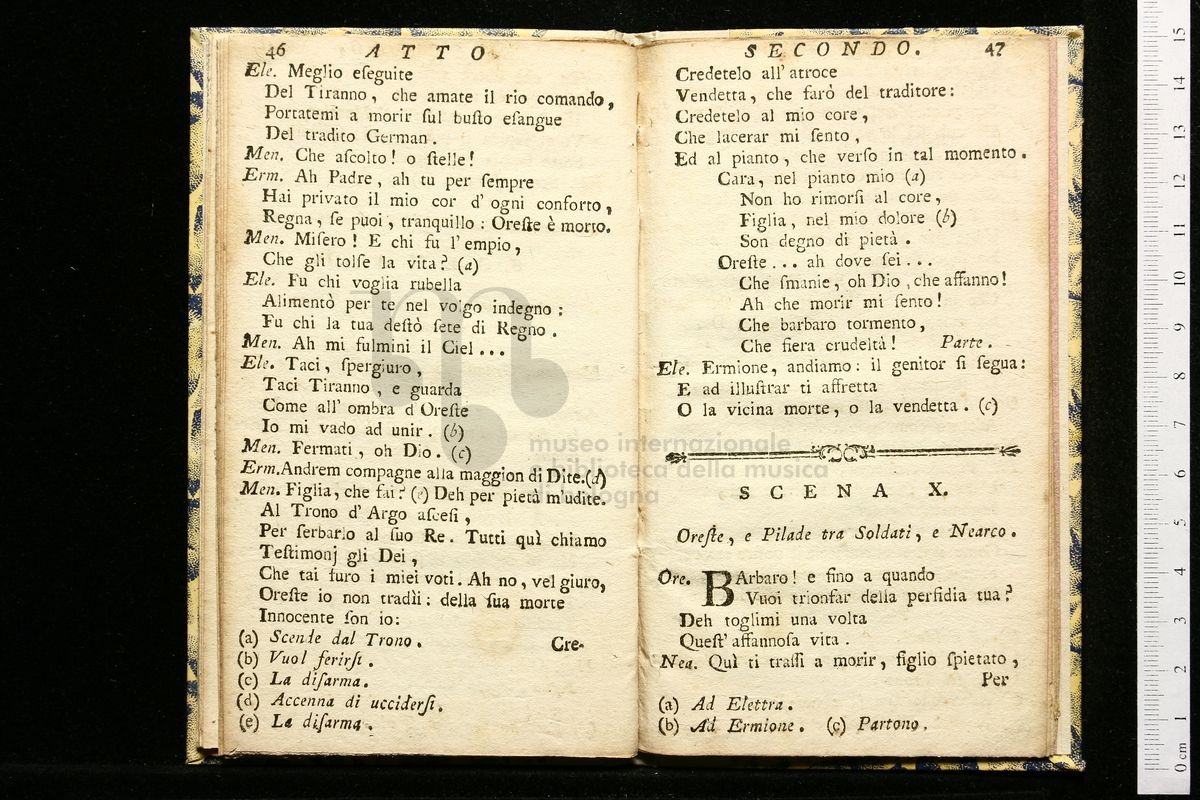 46 ATTO
Ele. Meglio eſeguite
Del Tiranno, che amate il rio comando,
Portatemi a morir ſul buſto eſangue
Del tradito German.
Men. Che aſcolto! o ſtelle!
Erm. Ah Padre, ah tu per ſempre
Hai privato il mio cor d' ogni conforto,
Regna, ſe puoi, tranquillo: Oreſte è morto.
Men. Miſero! E chi fu l' empio,
Che gli tolſe la vita? (a)
Ele. Fu chi voglia rubella
Alimentò per te nel volgo indegno:
Fu chi la tua deſtò ſete di Regno.
Men. Ah mi fulmini il Ciel...
Ele. Taci, ſpergiuro,
Taci Tiranno, e guarda
Come all' ombra d Oreſte
Io mi vado ad unir. (b)
Men. Fermati, oh Dio. (c)
Erm. Andrem compagne alla maggion di Dite. (d)
Men. Figlia, che fai? (e) Deh per pietà m'udite.
Al Trono d' Argo aſceſi,
Per ſerbarlo al ſuo Re. Tutti quì chiamo
Teſtimonj gli Dei,
Che tai furo i miei voti. Ah no, vel giuro,
Oreſte io non tradìi: della ſua morte
Innocente ſon io:
Cre-
(a) Scende dal Trono.
(b) Vuol ferirſi.
(c) La diſarma.
(d) Accenna di ucciderſi.
(e) La diſarma.
SECONDO. 47
Credetelo all' atroce
Vendetta, che farò del traditore:
Credetelo al mio core,
Che lacerar mi ſento,
Ed al pianto, che verſo in tal momento.
Cara, nel pianto mio (a)
Non ho rimorſi al core,
Figlia, nel mio dolore (b)
Son degno di pietà.
Oreſte... ah dove ſei...
Che ſmanie, oh Dio, che affanno!
Ah che morir mi ſento!
Che barbaro tormento,
Che fiera crudeltà! Parte.
Ele. Ermione, andiamo: il genitor ſi ſegua:
E ad illuſtrar ti affretta
O la vicina morte, o la vendetta. (c)
SCENA X.
Oreſte, e Pilade tra Soldati, e Nearco.
Ore. BArbaro! e fino a quando
Vuoi trionfar della perfidia tua?
Deh toglimi una volta
Queſt' affannoſa vita.
Nea. Quì ti traſſi a morir, figlio ſpietato,
Per
(a) Ad Elettra.
(b) Ad Ermione. (c) Partono.
museo internazionale
e biblioteca della musica
di bologna
0 cm 1 2 3 4 5 6 7 8 9 10 11 12 13 14 15